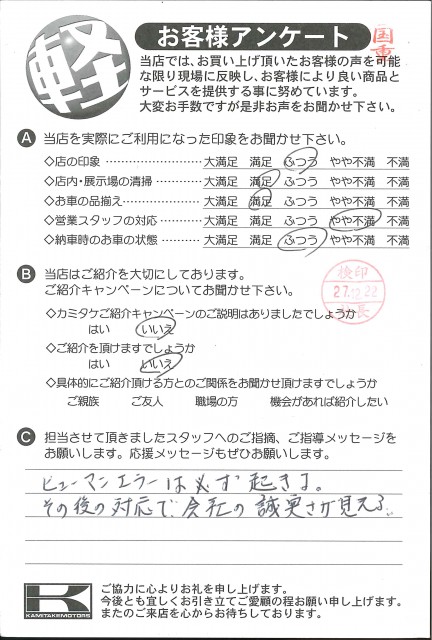 軽
お客様アンケート
国
車
当店では、お買い上げ頂いたお客様の声を可能
な限り現場に反映し、お客様により良い商品と
サービスを提供する事に努めています。
大変お手数ですが是非お声をお聞かせ下さい。
A 当店を実際にご利用になった印象をお聞かせ下さい。
◇店の印象 大満足 満足 ふつう やや不満 不満
◇店内・展示場の清掃 大満足 満足 ふつう やや不満 不満
◇お車の品揃え 大満足 満足 ふつう やや不満 不満
◇営業スタッフの対応 大満足 満足 ふつう やや不満 不満
◇納車時のお車の状態 大満足 満足 ふつう やや不満 不満
B 当店はご紹介を大切にしております。
ご紹介キャンペーンについてお聞かせ下さい。
検印
27.12.22
長
◇カミタケご紹介キャンペーンのご説明はありましたでしょうか
はい いいえ
◇ご紹介を頂けますでしょうか
はい いいえ
◇具体的にご紹介頂ける方とのご関係をお聞かせ頂けますでしょうか
ご親族 ご友人 職場の方 機会があれば紹介したい
C 担当させて頂きましたスタッフへのご指摘、ご指導メッセージを
お願いします。応援メッセージもぜひお願いします。
ヒューマンエラーは必ず起きます。
その後の対応で会社の誠実さが見える。
K
KAMITAKEMOTORS
ご協力に心よりお礼を申し上げます。
今後とも宜しくお引き立てご愛顧の程お願い申し上げます。
またのご来店を心からお待ちしております。